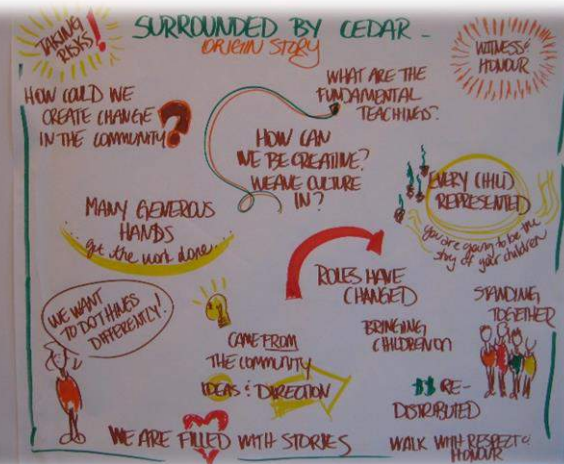 TAKING
RISKS!
SURROUNDED BY CEDAR -
ORIGIN STORY
WITNESS &
HONOUR
HOW COULD WE
CREATE CHANGE
IN THE COMMUNITY?
WHAT ARE THE
FUNDAMENTAL
TEACHINGS?
HOW CAN
WE BE CREATIVE?
WEAVE CULTURE
IN?
EVERY CHILD
REPRESENTED
you are going to be the
story of your children
MANY GENEROUS
HANDS
get the work done...
ROLES HAVE
CHANGED
WE WANT
TO DO THINGS
DIFFERENTLY!
STANDING
TOGETHER
BRINGING
CHILDREN ON
CAME FROM
THE COMMUNITY
IDEAS & DIRECTION
$$ RE-
DISTRIBUTED
WE ARE FILLED WITH STORIES
WALK WITH RESPECT &
HONOUR